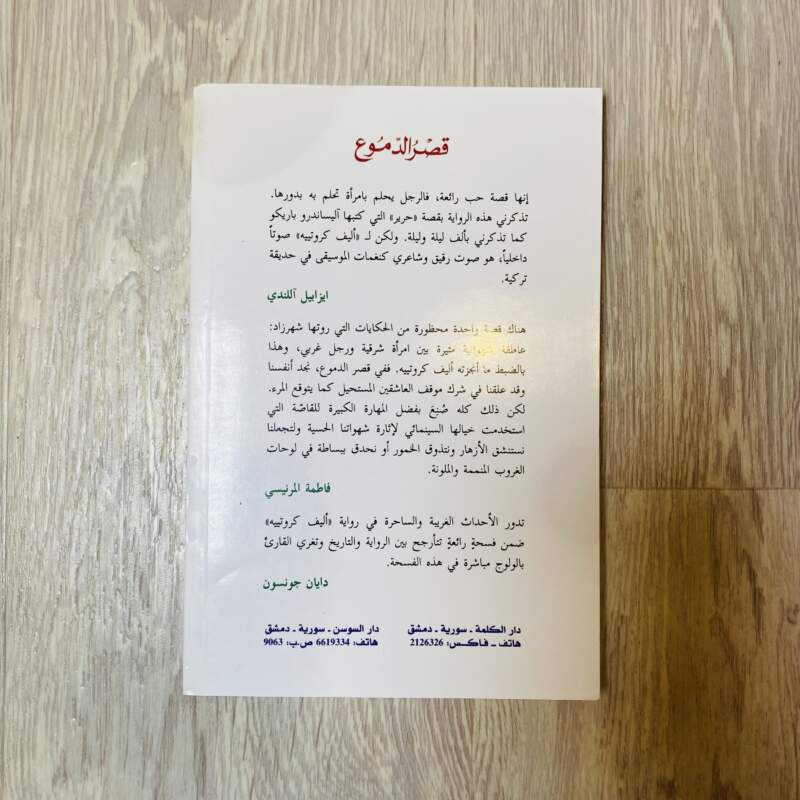 قصْرُ الدّموُع
إنها قصة حب رائعة، فالرجل يحلم بامرأة تحلم به بدورها.
تذكرني هذه الرواية بقصة «حرير» التي كتبها آليساندرو باريكو
كما تذكرني بألف ليلة وليلة. ولكن لـ «أليف كروتييه» صوتاً
داخلياً، هو صوت رقيق وشاعري كنغمات الموسيقى في حديقة
تركية.
ايزابيل آللندي
هناك قصة واحدة محظورة من الحكايات التي روتها شهرزاد:
عاطفة شهوانية مثيرة بين امرأة شرقية ورجل غربي، وهذا
بالضبط ما أنجزته أليف كروتييه. ففي قصر الدموع، نجد أنفسنا
وقد علقنا في شرك موقف العاشقين المستحيل كما يتوقع المرء.
لكن ذلك كله صُنِعَ بفضل المهارة الكبيرة للقاصّة التي
استخدمت خيالها السينمائي لإثارة شهواتنا الحسية ولتجعلنا
نستنشق الأزهار ونتذوق الخمور أو نحدق ببساطة في لوحات
الغروب المنممة والملونة.
فاطمة المرنيسي
تدور الأحداث الغريبة والساحرة في رواية «أليف كروتييه»
ضمن فسحةٍ رائعةٍ تتأرجح بين الرواية والتاريخ وتغري القارئ
بالولوج مباشرة في هذه الفسحة.
دايان جونسون
دار الكلمة ـ سورية ـ دمشق
هاتف ـ فاكس: 2126326
دار السوسن ـ سورية ـ دمشق
هاتف: 6619334 ص.ب: 9063